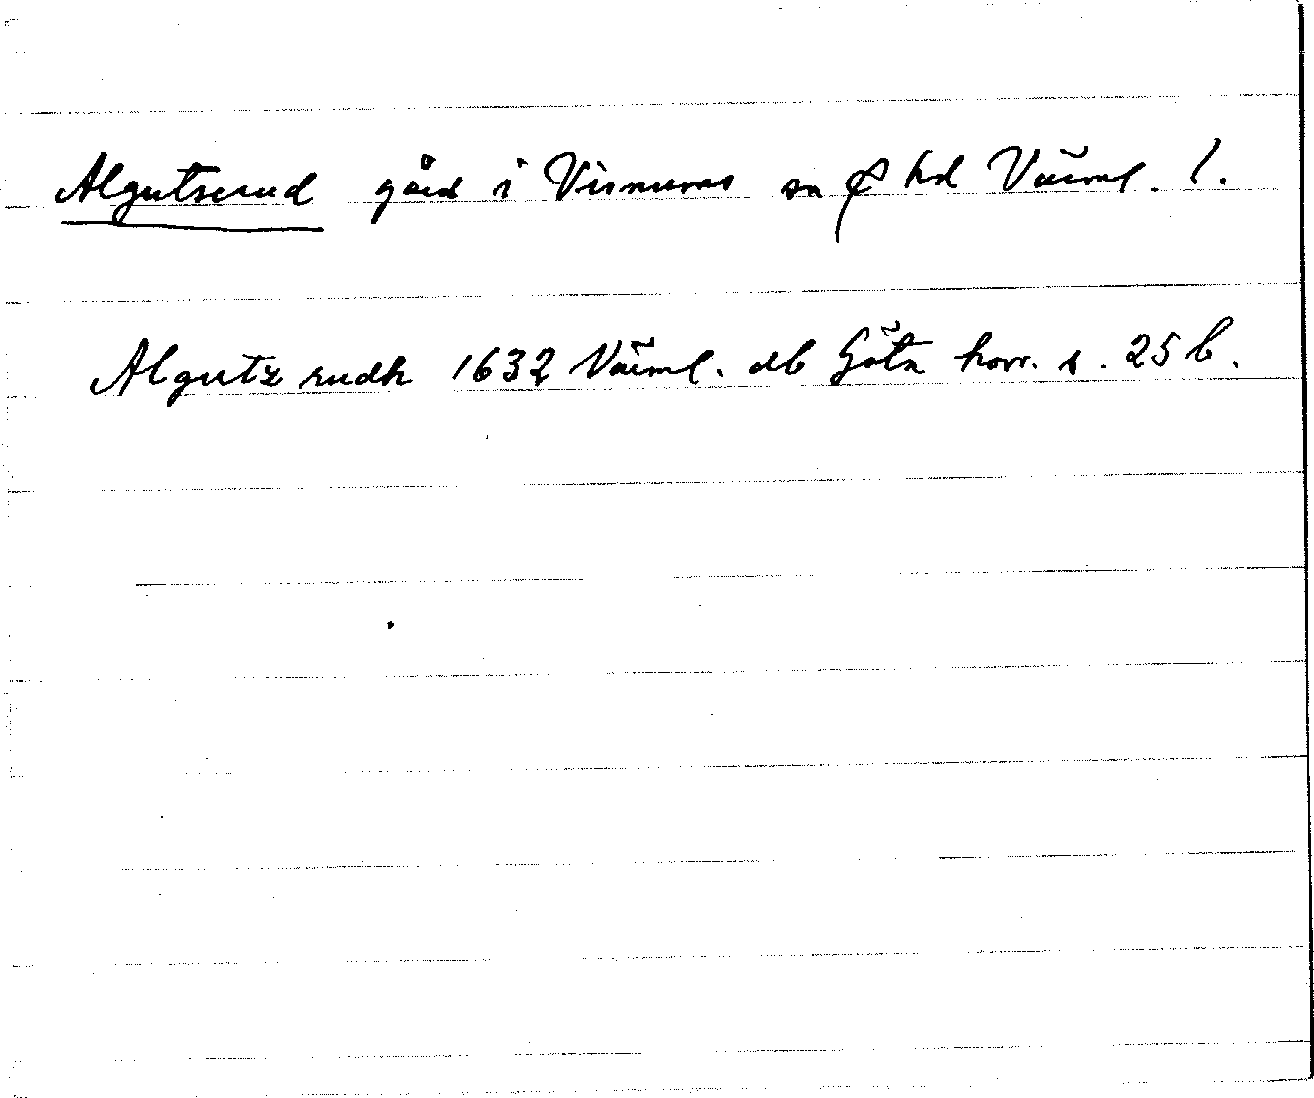 Algutserud gård i Visnums sn φ hd Värml. l.
Algutz rudh 1632 Värml. db Göta hovr. s. 25 b.